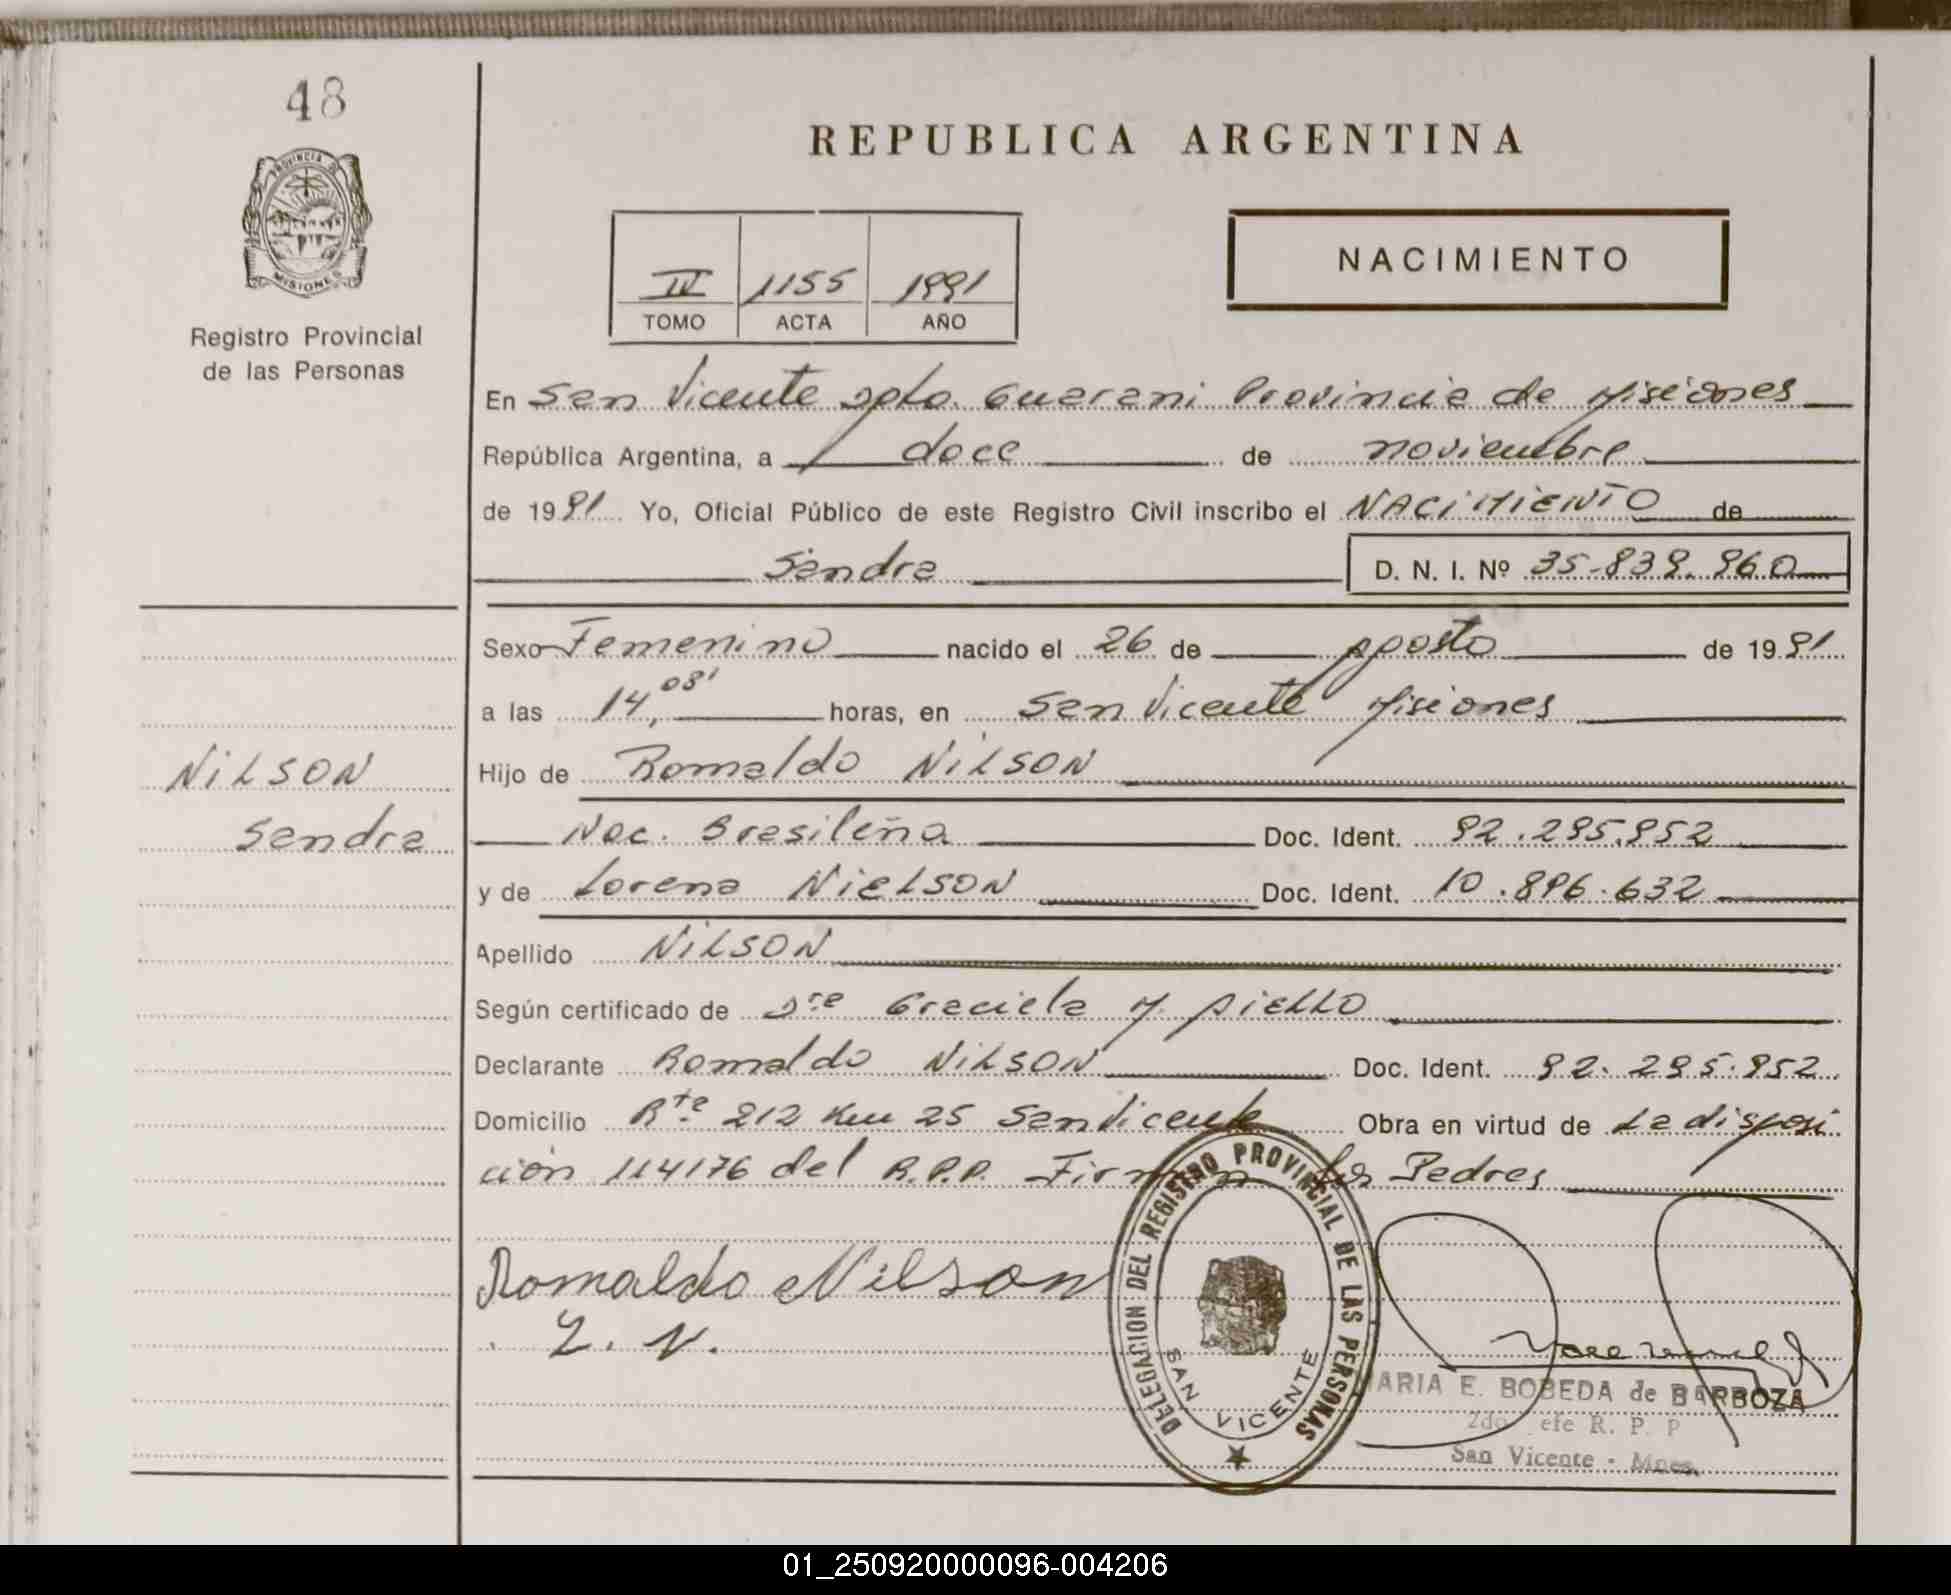 48
PROVINCIA DE
MISIONES
Registro Provincial
de las Personas
REPUBLICA ARGENTINA
NACIMIENTO
IV 1155 1991
TOMO ACTA AÑO
En San Vicente Dpto. Guarani Provincia de Misiones
República Argentina, a doce de noviembre
de 1991 Yo, Oficial Público de este Registro Civil inscribo el NACIMIENTO de
Sandra D. N. I. Nº 35.839.960
Sexo Femenino nacido el 26 de Agosto de 1991
a las 14,08' horas, en San Vicente Misiones
NILSON
Sandra
Hijo de Romaldo NILSON
Nac. Brasileña Doc. Ident. 92.295.952
y de Lorena NIELSON Doc. Ident. 10.896.632
Apellido NILSON
Según certificado de Dra Graciela M. AIELLO
Declarante Romaldo NILSON Doc. Ident. 92.295.952
Domicilio Rta 212 Km 25 San Vicente Obra en virtud de La disposi
ción 114176 del R.P.P. Firman los Padres
Romaldo Nilson
L. N.
DELEGACION DEL REGISTRO PROVINCIAL DE LAS PERSONAS
SAN VICENTE
MARIA E. BOBEDA de BARBOZA
2do Jefe R. P. P
San Vicente - Mnes.
01_250920000096-004206